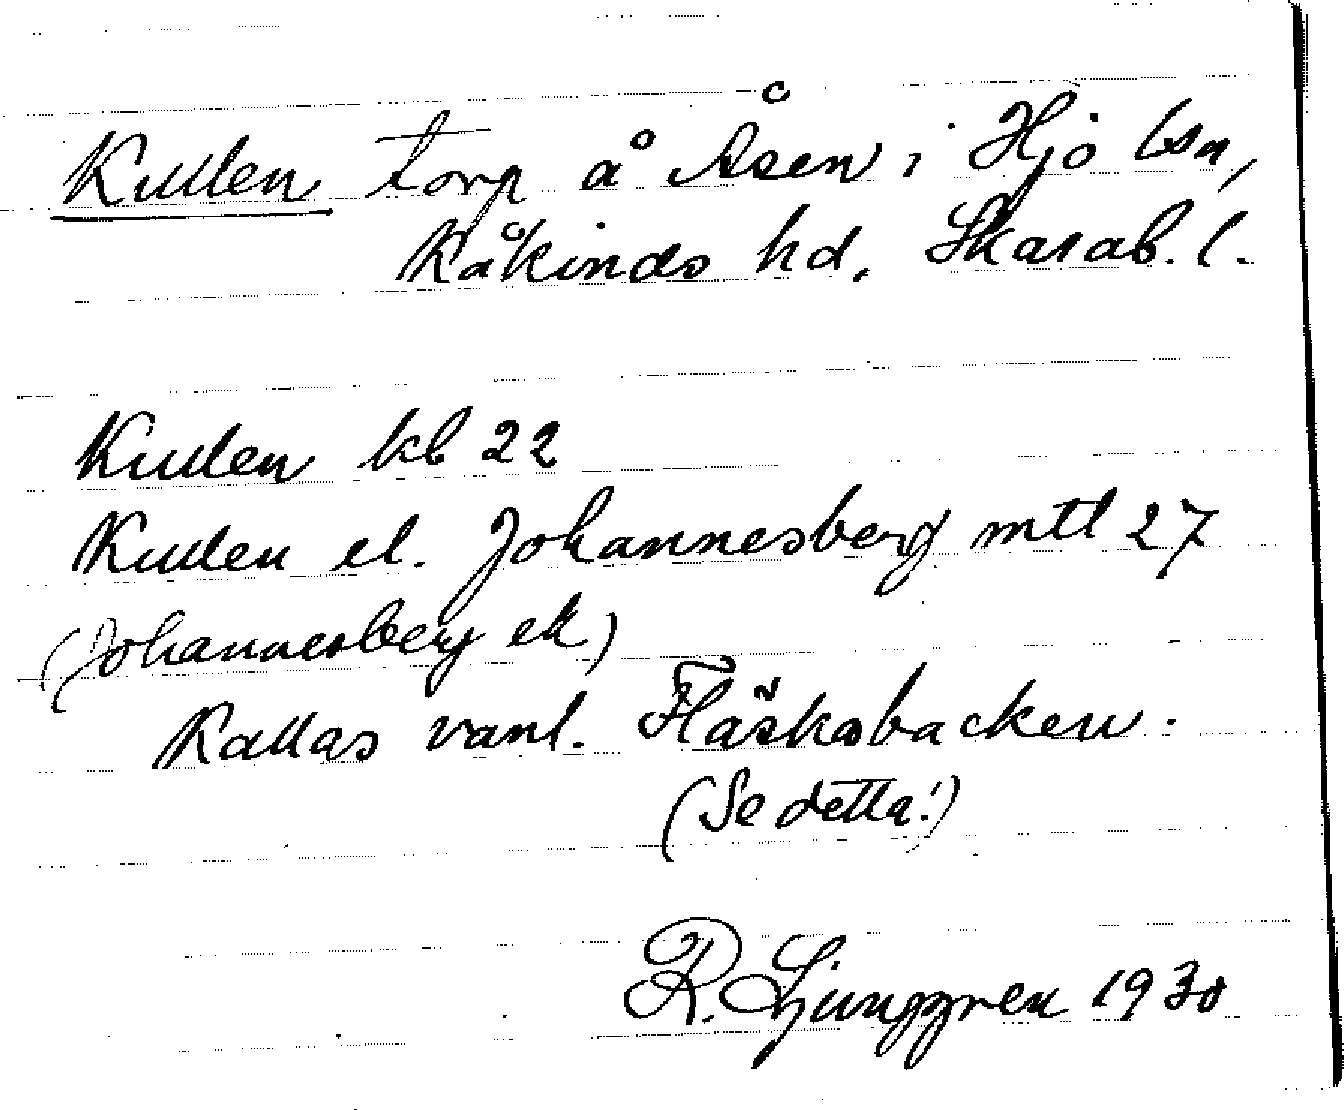 Kullen torp å Åsen i Hjo lsn,
Kåkinds hd. Skarab. l.
Kullen kb 22
Kullen el. Johannesberg mtl 27
(Johannesberg ek)
Kallas vanl. Fläsksbacken.
(Se detta!)
R. Ljunggren 1930